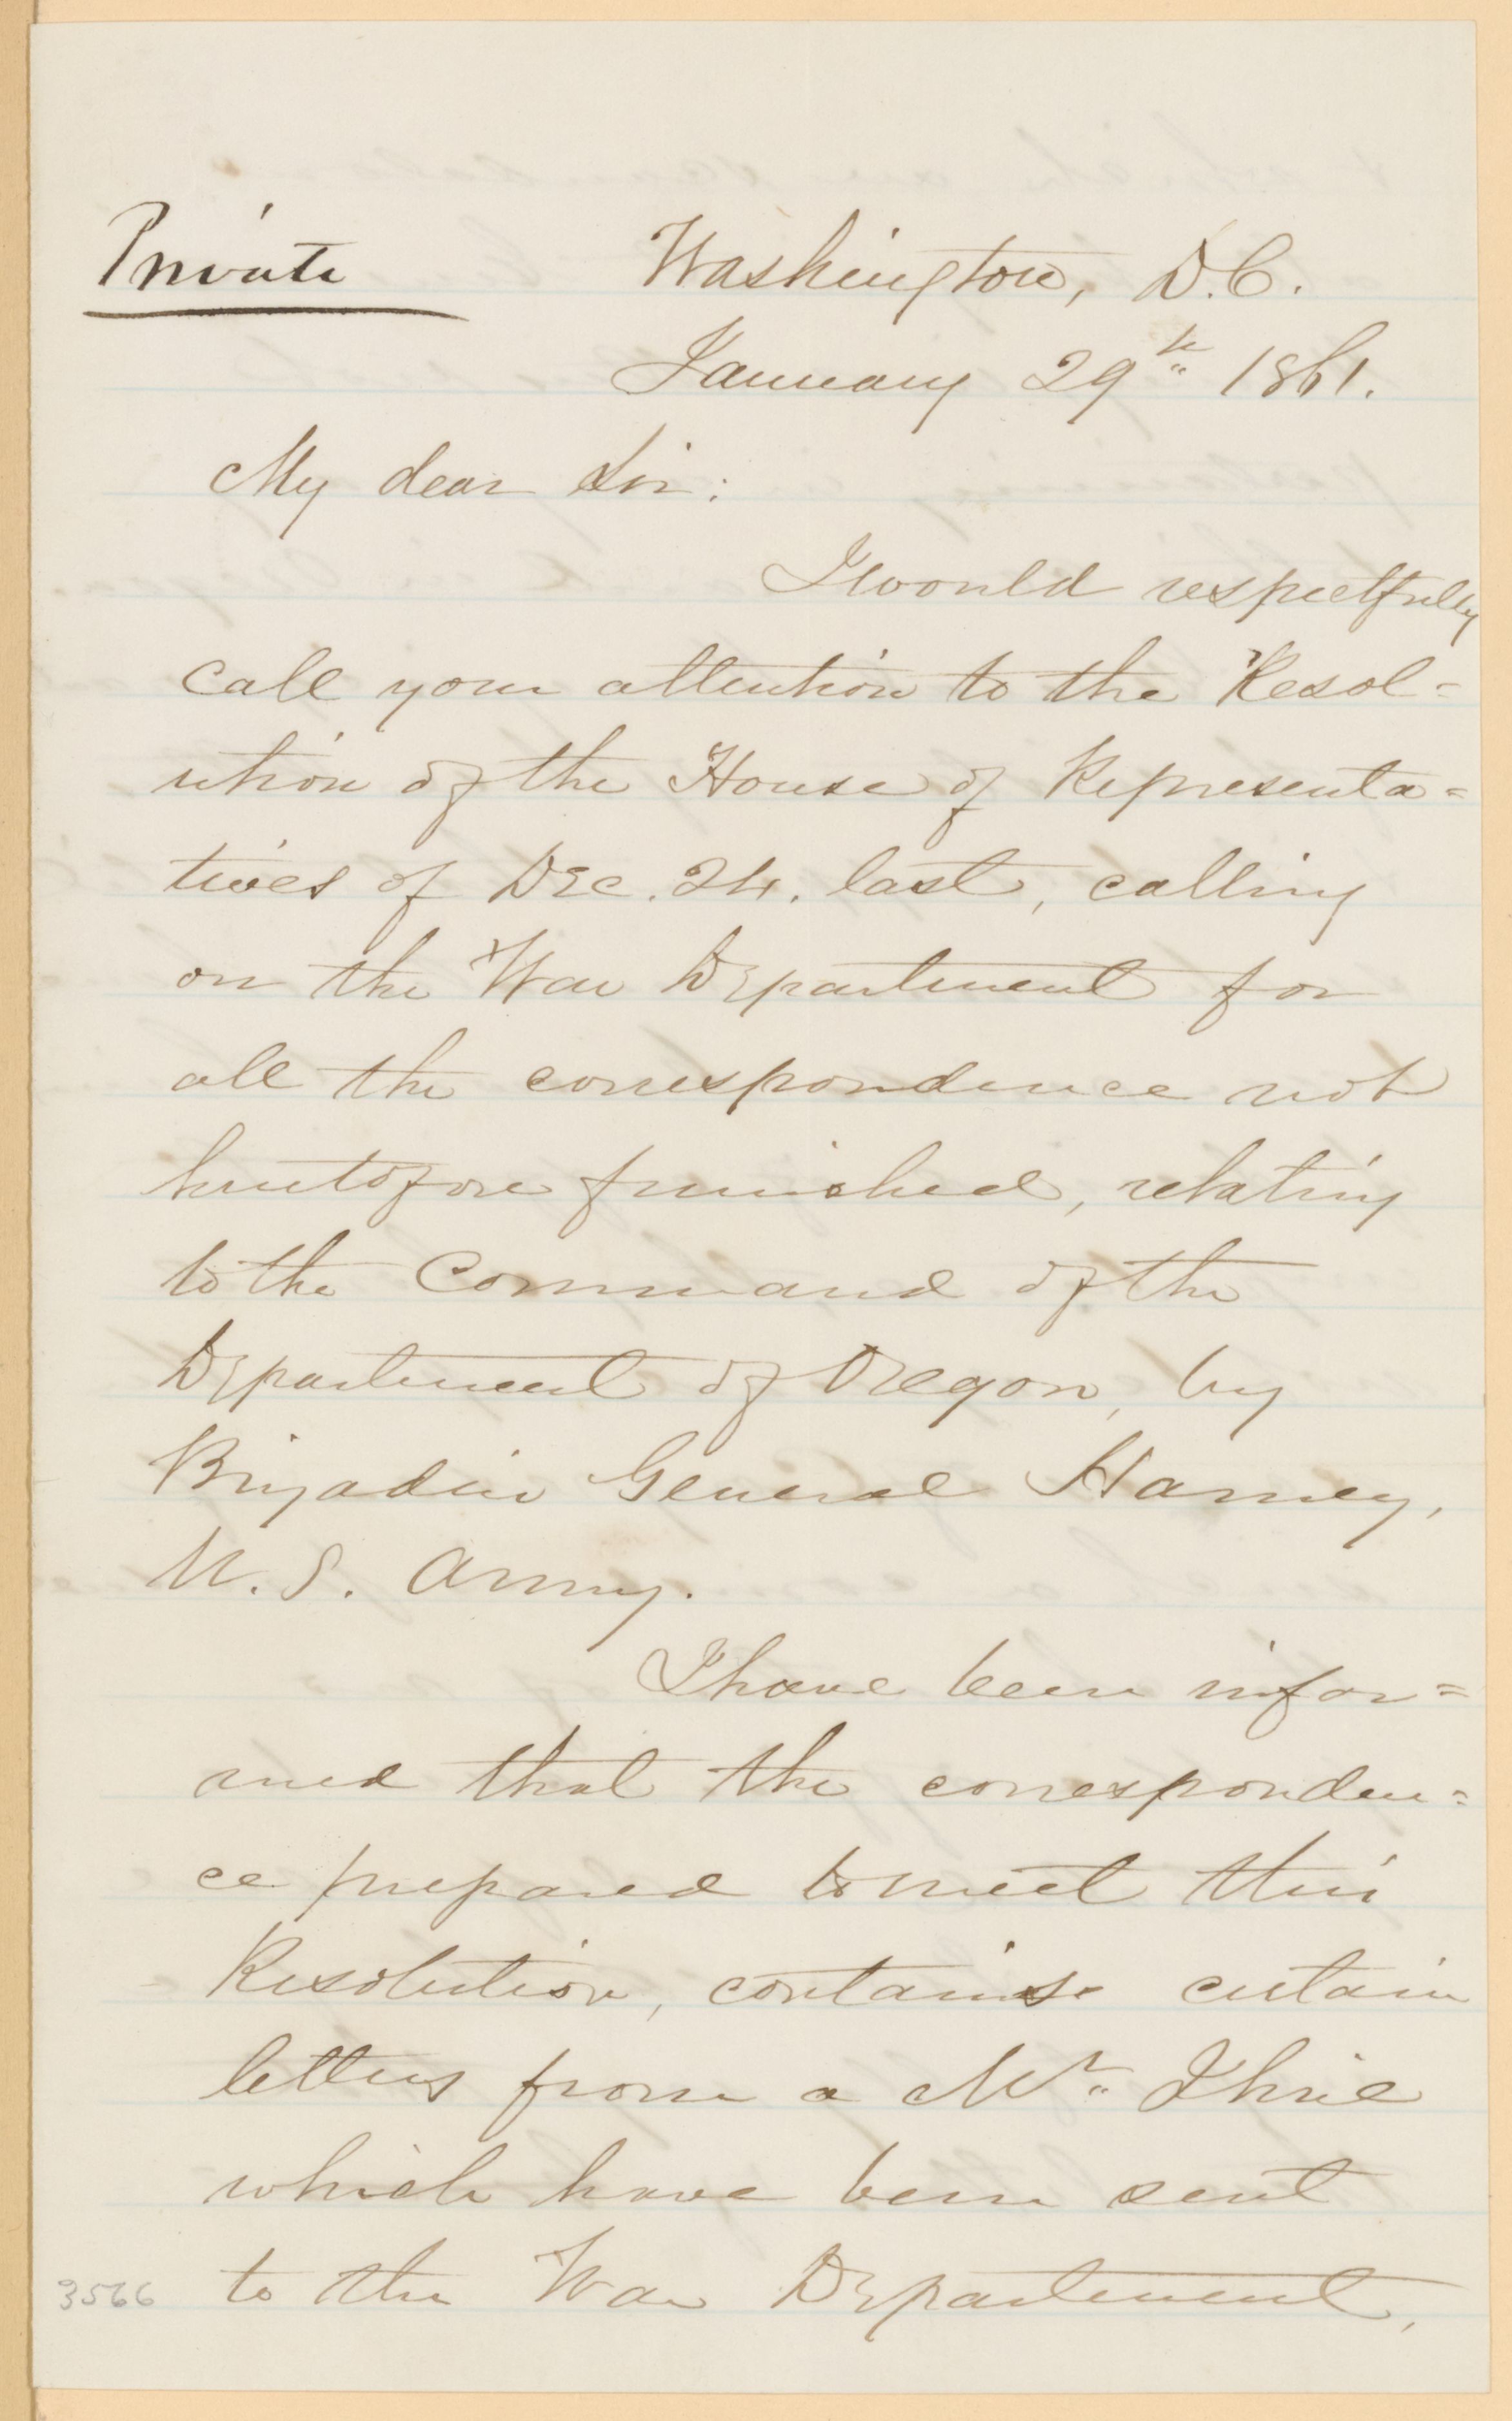 Private
Washington, D.C.
January 29th 1861.
My dear Sir:
I would respectfully
call your attention to the Resol=
ution of the House of Representa=
tives of Dec. 24. last, calling
on the War Department for
all the correspondence not
heretofore furnished, relating
to the Command of the
Department of Oregon, by
Brigadier General Harney,
U.S. Army.
I have been infor=
med that the corresponden=
ce prepared to meet this
Resolution, contains certain
letters from a Mr. Ihrie
which have been sent
to the War Department,
3566